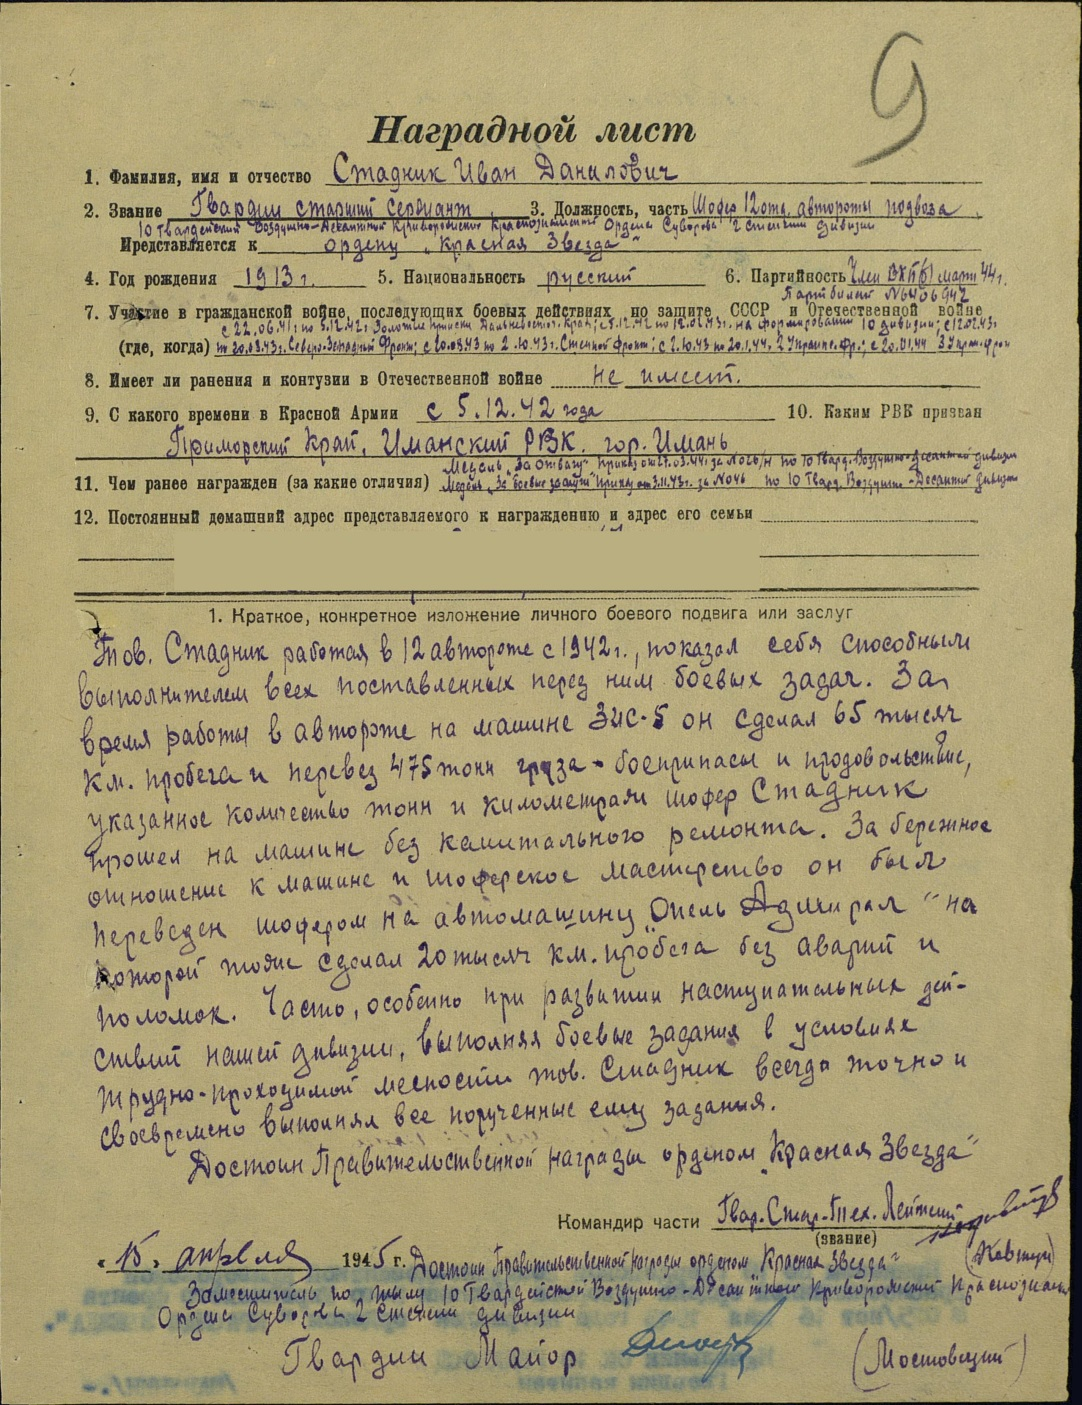 9
Наградной лист
1. Фамилия, имя и отчество Стадник Иван Данилович
2. Звание Гвардии старший сержант. 3. Должность, часть Шофер 12 отд. автороты подвоза
10 Гвардейской Воздушно-Десантной Криворожской Краснознаменной Ордена Суворова 2 степени дивизии
Представляется к ордену „Красная Звезда"
4. Год рождения 1913 г. 5. Национальность русский 6. Партийность Член ВКП(б) март 44 г.
Партбилет № 6406942
7. Участие в гражданской войне, последующих боевых действиях по защите СССР и Отечественной войне
с 22.06.41 г. по 5.12.42 г. Золотые прииски Дальневосточ. Край; с 5.12.42 по 12.02.43 г. на формировании 10 дивизии; с 12.02.43 г.
(где, когда) по 20.08.43 г. Северо-Западный Фронт; с 20.08.43 по 2.10.43 г. Степной фронт; с 2.10.43 по 20.1.44. 2 Украинс. Фр.; с 20.01.44 3 Укран. фрон
8. Имеет ли ранения и контузии в Отечественной войне не имеет.
9. С какого времени в Красной Армии с 5.12.42 года 10. Каким РВК призван
Приморский Край, Иманский РВК. гор. Имань
Медаль „За отвагу" Приказ от 27.03.44 г. за № 026/н по 10 Гвард. Воздушно-Десантной дивизии
11. Чем ранее награжден (за какие отличия) Медаль „За боевые заслуги" Приказ от 3.11.43 г. за № 046 по 10 Гвард. Воздушно-Десантной дивизии
12. Постоянный домашний адрес представляемого к награждению и адрес его семьи
1. Краткое, конкретное изложение личного боевого подвига или заслуг
Тов. Стадник работая в 12 автороте с 1942 г., показал себя способным
выполнителем всех поставленных перед ним боевых задач. За
время работы в автороте на машине ЗИС-5 он сделал 65 тысяч
км. пробега и перевез 475 тонн груза - боеприпасы и продовольствие,
указанное количество тонн и километражи шофер Стадник
прошел на машине без капитального ремонта. За бережное
отношение к машине и шоферское мастерство он был
переведен шофером на автомашину Опель Адмирал" на
которой тоже сделал 20 тысяч км. пробега без аварий и
поломок. Часто, особенно при развитии наступательных дей-
ствий нашей дивизии, выполняя боевые задания в условиях
трудно-проходимой месности тов. Стадник всегда точно и
своевремено выполнял все порученные ему задания.
Достоин Правительственной награды орденом „Красная Звезда"
Командир части Гвар. Стар.-Тех. Лейтенант
(звание)
„15" апреля 1945 г. Достоин Правительственной награды орденом „Красная Звезда"
Заместитель по тылу 10 Гвардейской Воздушно-Десантной Криворожской Краснознамен
Ордена Суворова 2 степени дивизии
Гвардии Майор (Мостовецкий)